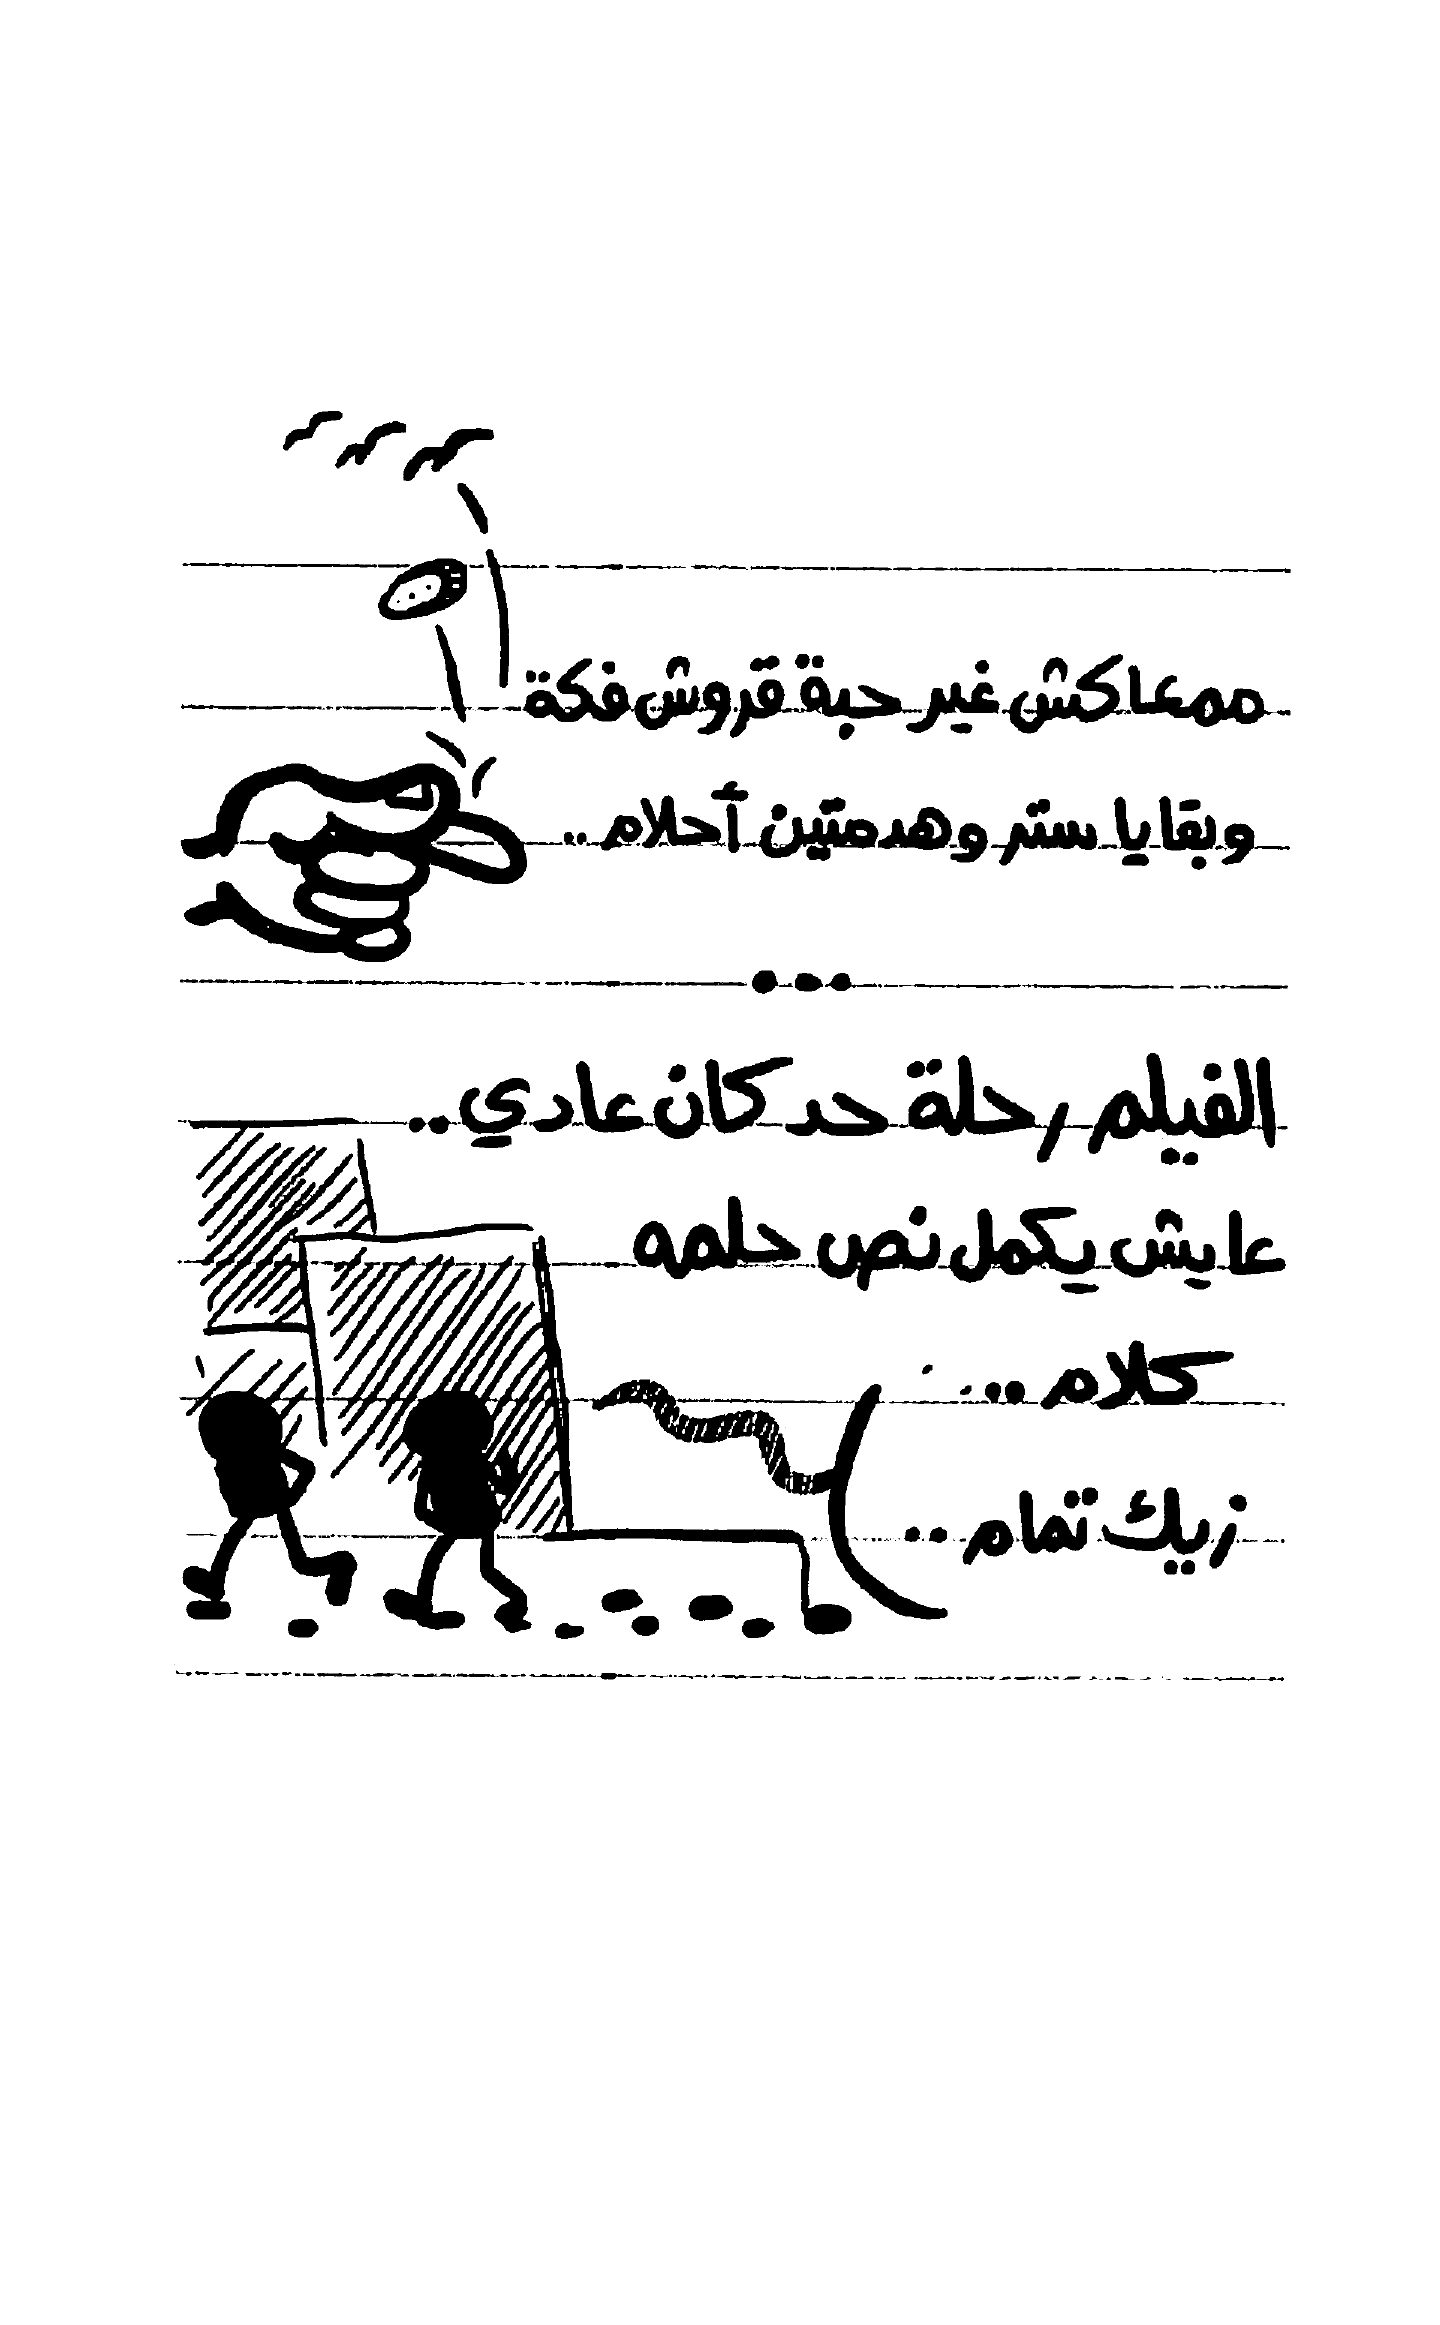 ممعاكش غير حبة قروش فكة
وبقايا ستر وهدمتين أحلام ..
...
الفيلم رحلة حد كان عادي ..
عايش يكمل نص حلمه
كلام ..
زيك تمام ..